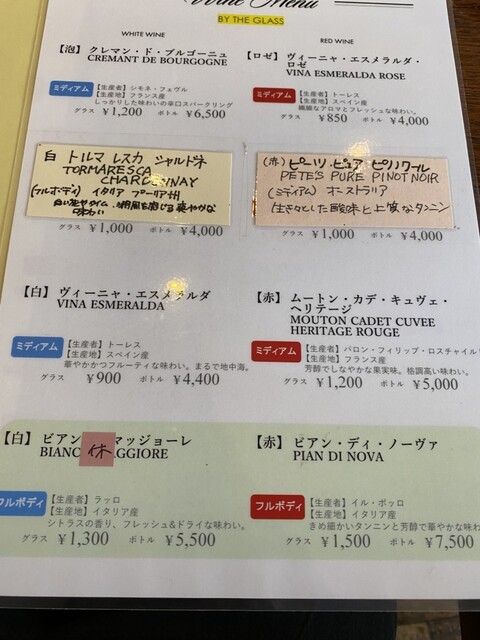 Wine Menu
BY THE GLASS
WHITE WINE
【泡】クレマン・ド・ブルゴーニュ
CREMANT DE BOURGOGNE
ミディアム
【生産者】シモネ・フェヴル
【生産地】フランス産
しっかりした味わいの辛口スパークリング
グラス ¥1,200 ボトル ¥6,500
白 トルマレスカ シャルドネ
TORMARESCA
CHARDONNAY
(フルボディ) イタリア プーリア州
白い花やタイム
味わい
グラス ¥1,000 ¥4,000
【白】ヴィーニャ・エスメラルダ
VINA ESMERALDA
ミディアム
【生産者】トーレス
【生産地】スペイン産
華やかかつフルーティな味わい。まるで地中海。
グラス ¥900 ボトル ¥4,400
【白】ビアン 休 マッジョーレ
BIANC AGGIORE
フルボディ
【生産者】ラッロ
【生産地】イタリア産
シトラスの香り、フレッシュ&ドライな味わい。
グラス ¥1,300 ボトル ¥5,500
RED WINE
【ロゼ】ヴィーニャ・エスメラルダ・
ロゼ
VINA ESMERALDA ROSE
ミディアム
【生産者】トーレス
【生産地】スペイン産
繊細なアロマとフレッシュな味わい。
グラス ¥850 ボトル ¥4,000
(赤) ピーツ・ピュア ピノノワール
PETE'S PURE PINOT NOIR
(ミディアム) オーストラリア
生き々とした酸味と上質なタンニン
グラス ¥1,000 ボトル ¥4,000
【赤】ムートン・カデ・キュヴェ・
ヘリテージ
MOUTON CADET CUVEE
HERITAGE ROUGE
ミディアム
【生産者】バロン・フィリップ・ロスチャイル
【生産地】フランス産
芳醇でしなやかな果実味。格調高い味わい。
グラス ¥1,200 ボトル ¥5,000
【赤】ピアン・ディ・ノーヴァ
PIAN DI NOVA
フルボディ
【生産者】イル・ボッロ
【生産地】イタリア産
きめ細かいタンニンと芳醇で華やかな味わ
グラス ¥1,500 ボトル ¥7,500